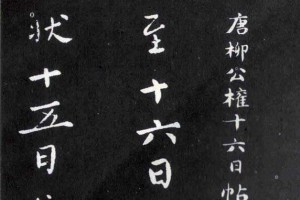 唐柳公權十六日帖
至十六日
狀十五日